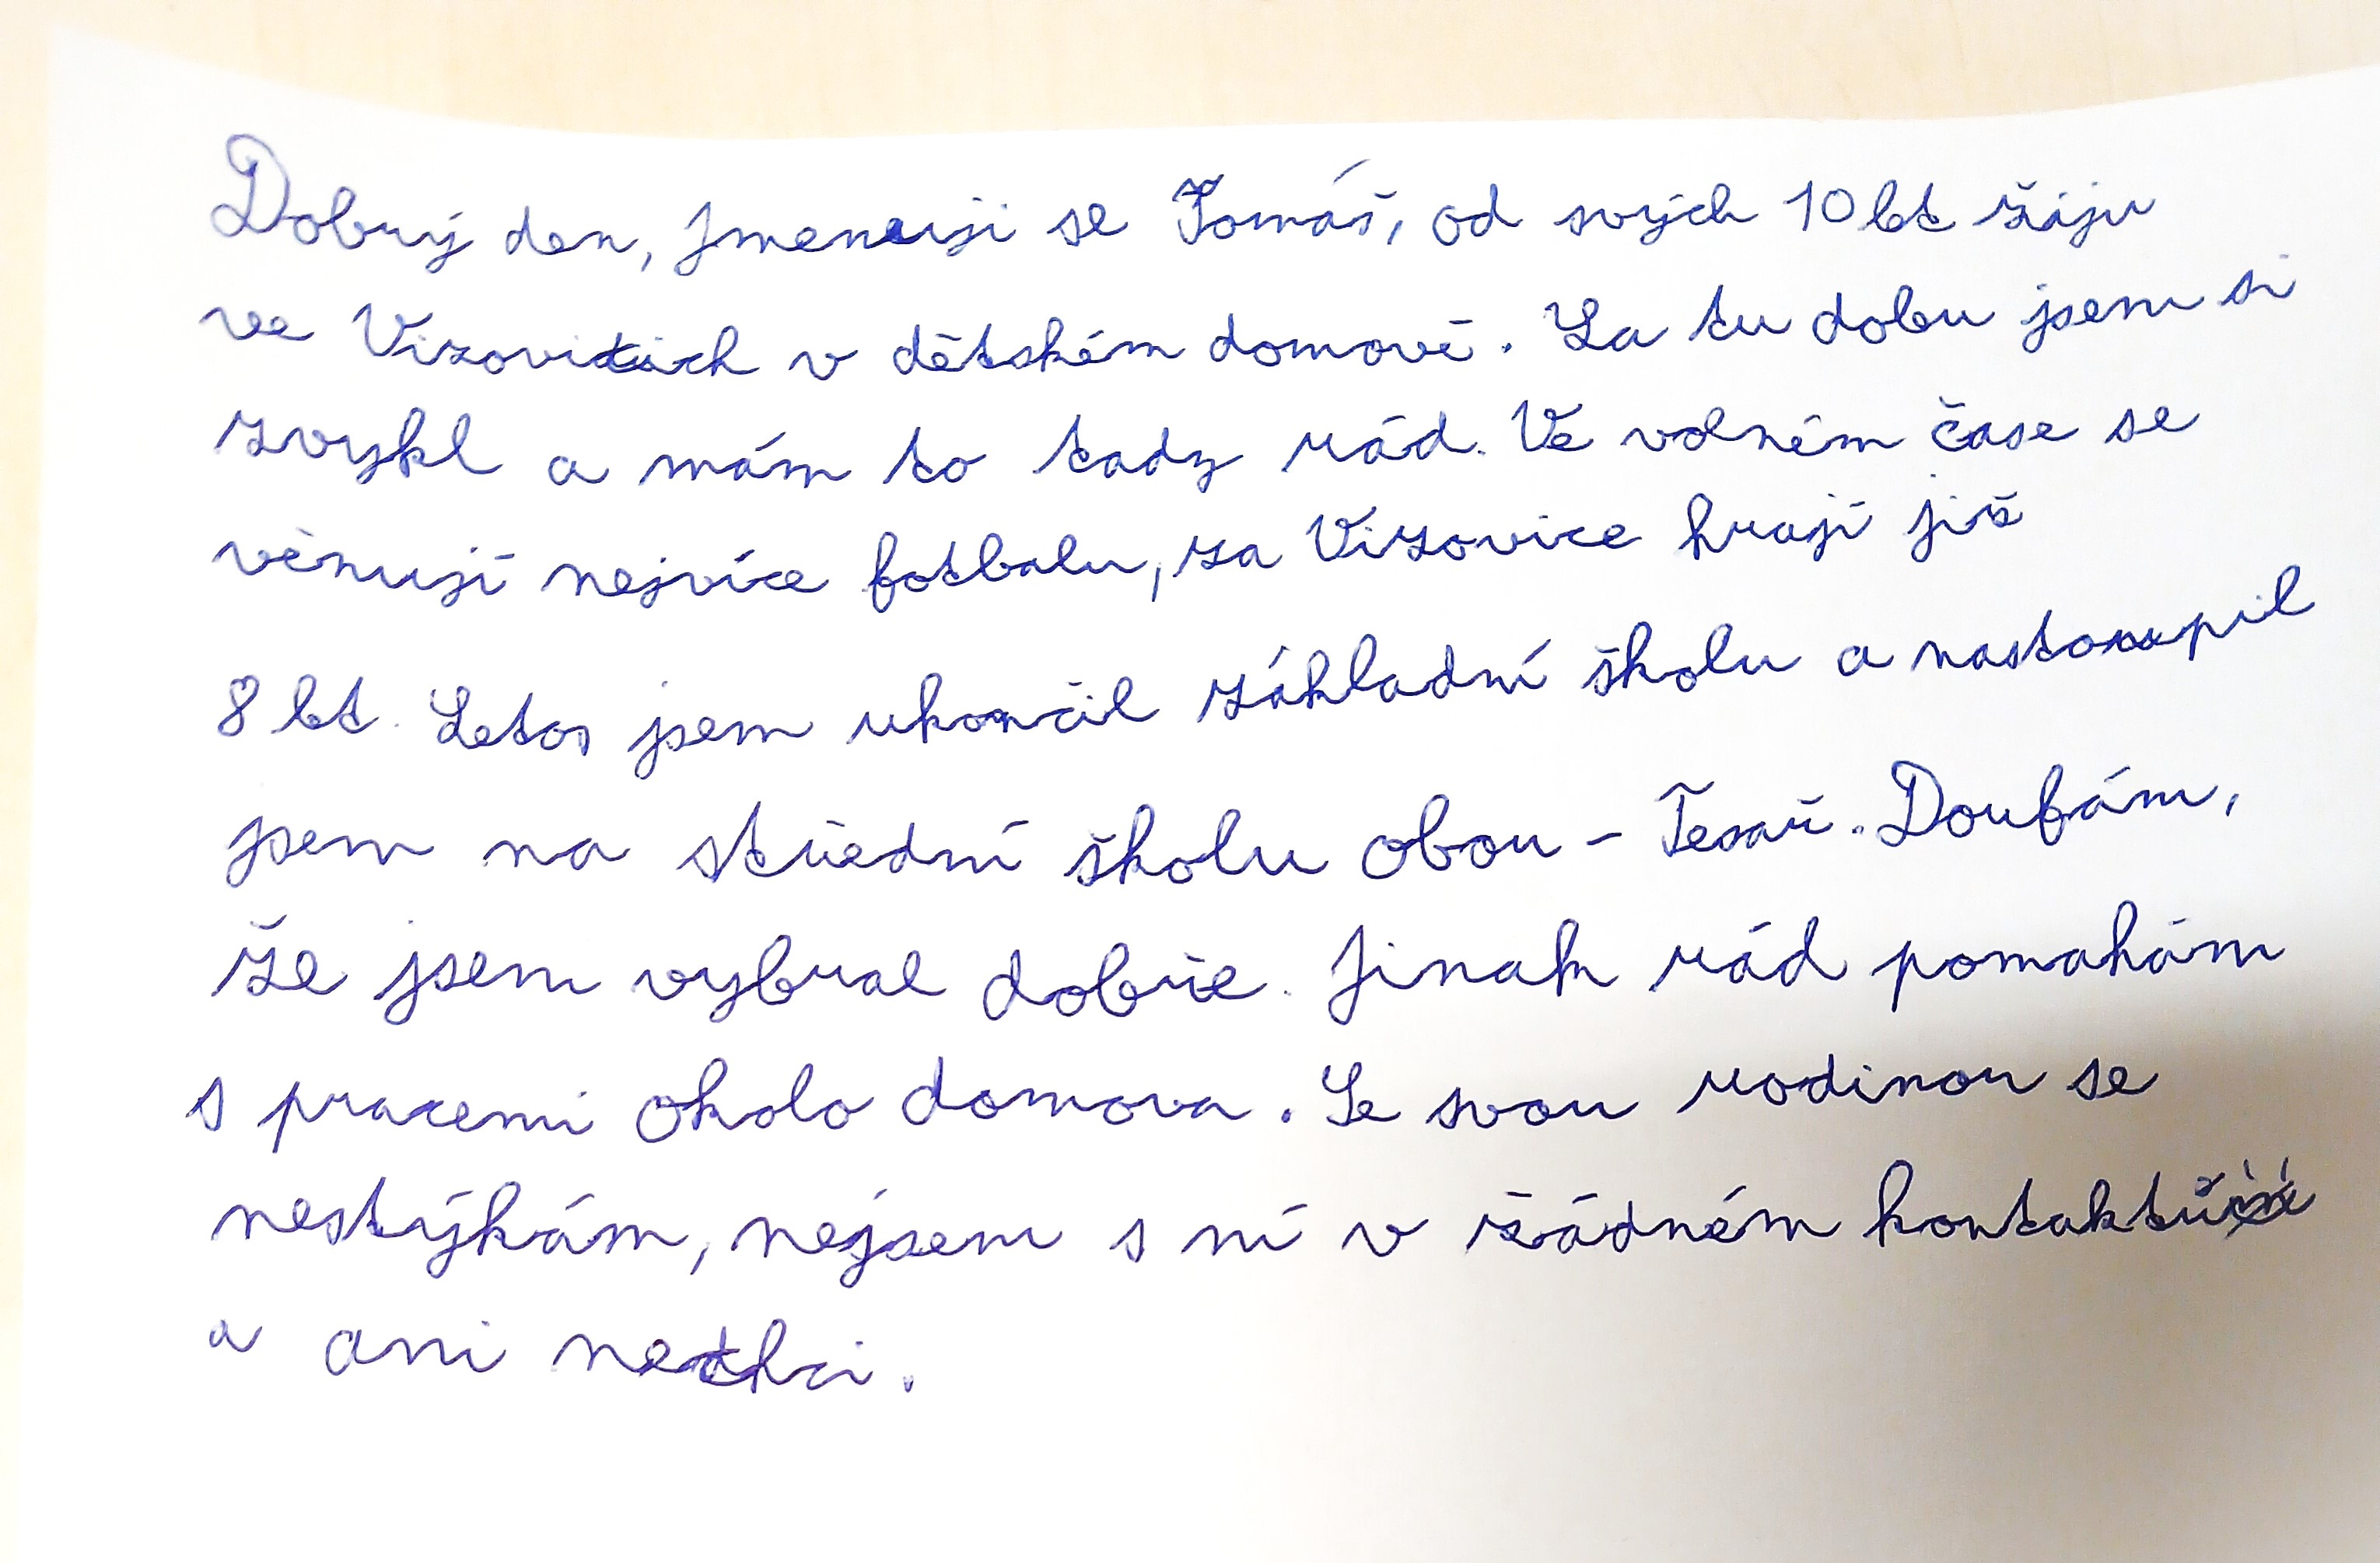 Dobrý den, jmenuji se Tomáš, od svých 10 let žiju
ve Vizovicích v dětském domově. Za tu dobu jsem si
zvykl a mám to tady rád. Ve volném čase se
věnuji nejvíce fotbalu, za Vizovice hraji již
8 let. Letos jsem ukončil základní školu a nastoupil
jsem na střední školu obou - Tesař. Doufám,
že jsem vybral dobře. Jinak rád pomahám
s pracemi okolo domova. Se svou rodinou se
nestýkám, nejsem s ní v žádném kontaktu
a ani nechci.